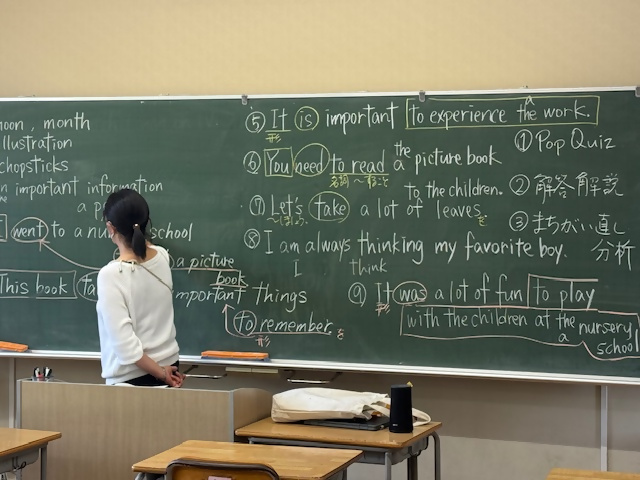 moon, month
illustration
chopsticks
an important information
a p
went to a nu school
a picture
book
This book ta
important things
to remember を
形
⑤ It is important to experience the work.
a
形
⑥ You need to read the picture book
名詞 〜すること
to the children.
⑦ Let's take a lot of leaves
〜しましょう。 を
⑧ I am always thinking my favorite boy.
I think
⑨ It was a lot of fun to play
形
with the children at the nursery
a school
① Pop Quiz
② 解答解説
③ まちがい直し
分析